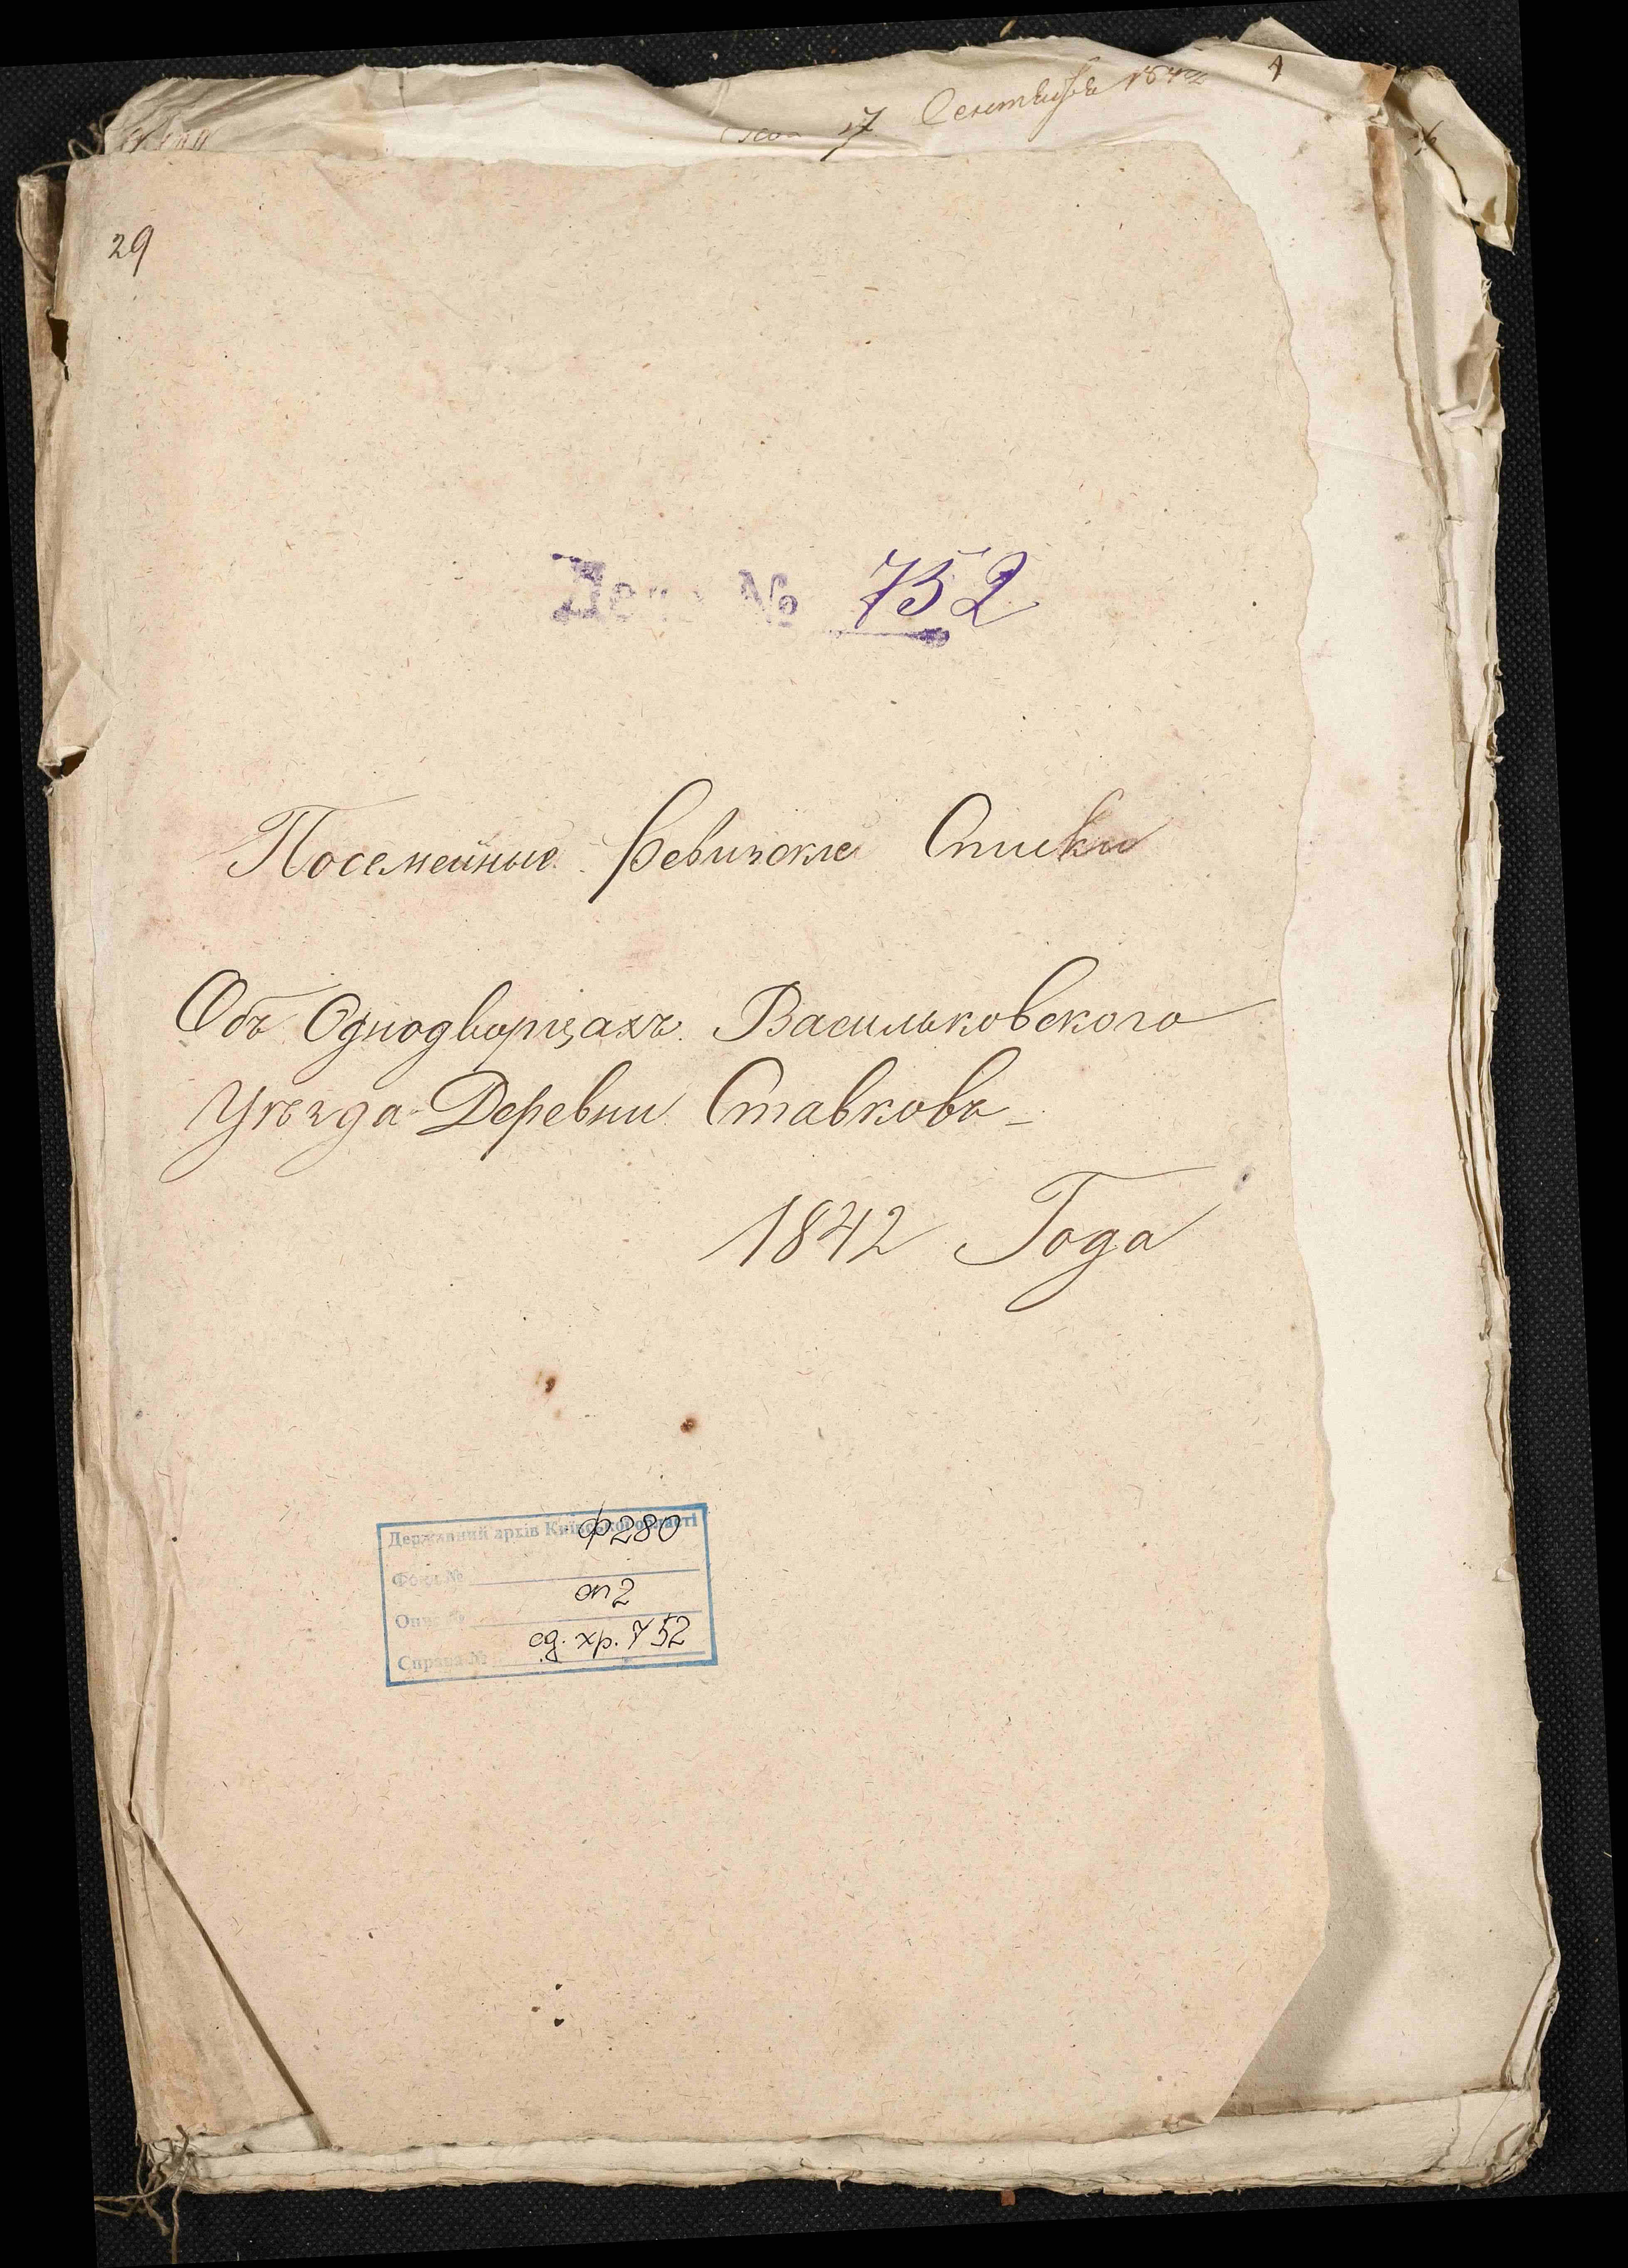 17 Сентября 1842
1
29
Дело № 752
Посемейные Ревизскіе Списки
Объ Однодворцахъ Васильковского
Уѣзда Деревни Ставковъ
1842 Года
Державний архів Київської області
ф 280
Фонд №
оп 2
Опис №
ед. хр. 752
Справа №